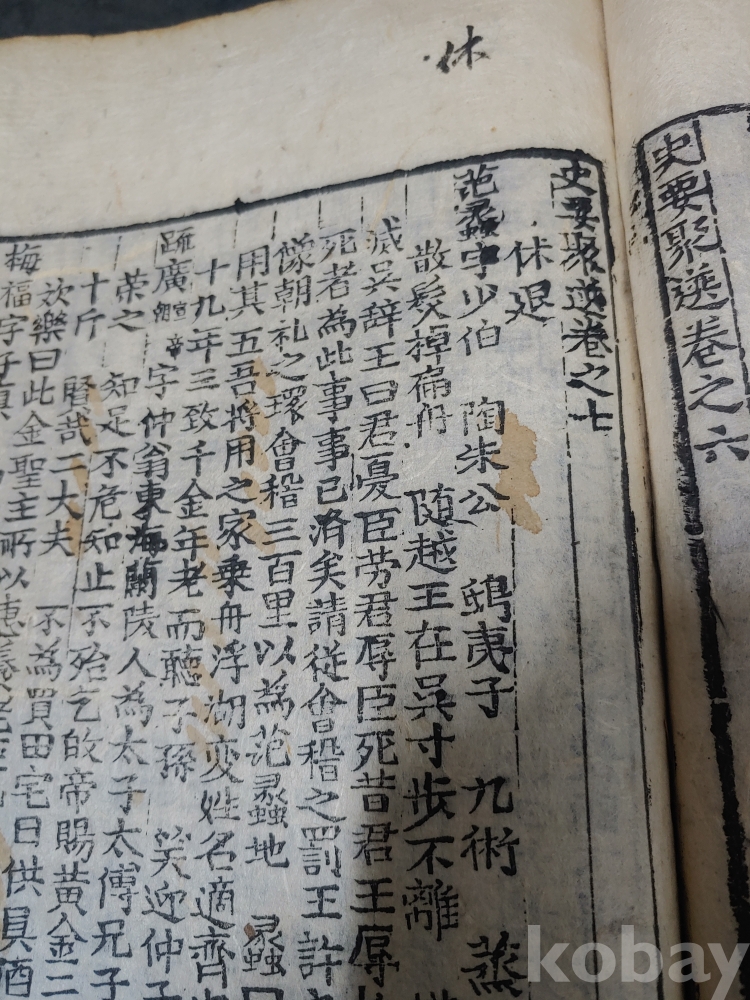 史要聚選卷之六
休
史要聚選卷之七
休退
范蠡字少伯 陶朱公 鴟夷子 九術 蒸
散髮掉扁舟 随越王在吳寸步不離
滅吳辞王曰君憂臣劳君辱臣死昔君王辱
死者為此事事已済矣請従會稽之罰王許
懐朝礼之環會稽三百里以為范蠡地 蠡曰
用其五吾将用之家乗舟浮湖变姓名適齊
十九年三致千金年老而聴子孫 笑迎仲子
疏廣宣帝朝字仲翁東海蘭陵人為太子太傅兄子
荣之 知足不危知止不殆乞故帝賜黄金三
十斤 賢哉二大夫 不為買田宅日供具酒
欢樂曰此金聖主所以惠養
梅福字子真
kobay